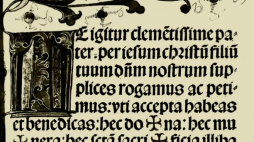 TE igitur clemẽtissime pa-
ter. per iesum christũ filiũ
tuum dñm nostrum sup-
plices rogamus ac peti-
mus: vti accepta habeas
et benedicas: hec do✠na: hec mu
✠nera: hec sctã sacri✠ficia illiba